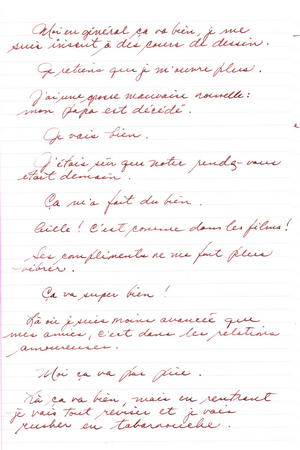 Moi en général ça va bien, je me
suis inscrit à des cours de dessin.
Je retiens que je m'ouvre plus.
J'ai une grosse mauvaise nouvelle:
mon papa est décédé.
Je vais bien.
J'étais sûr que notre rendez-vous
était demain.
Ça m'a fait du bien.
Aïlle! C'est comme dans les films!
Ses compliments ne me font plus
vibrer.
Ça va super bien!
Là où je suis moins avancée que
mes amies, c'est dans les relations
amoureuses.
Moi ça va pas pire.
Là ça va bien, mais en rentrant
je vais tout réviser et je vais
rusher en tabarnouche.